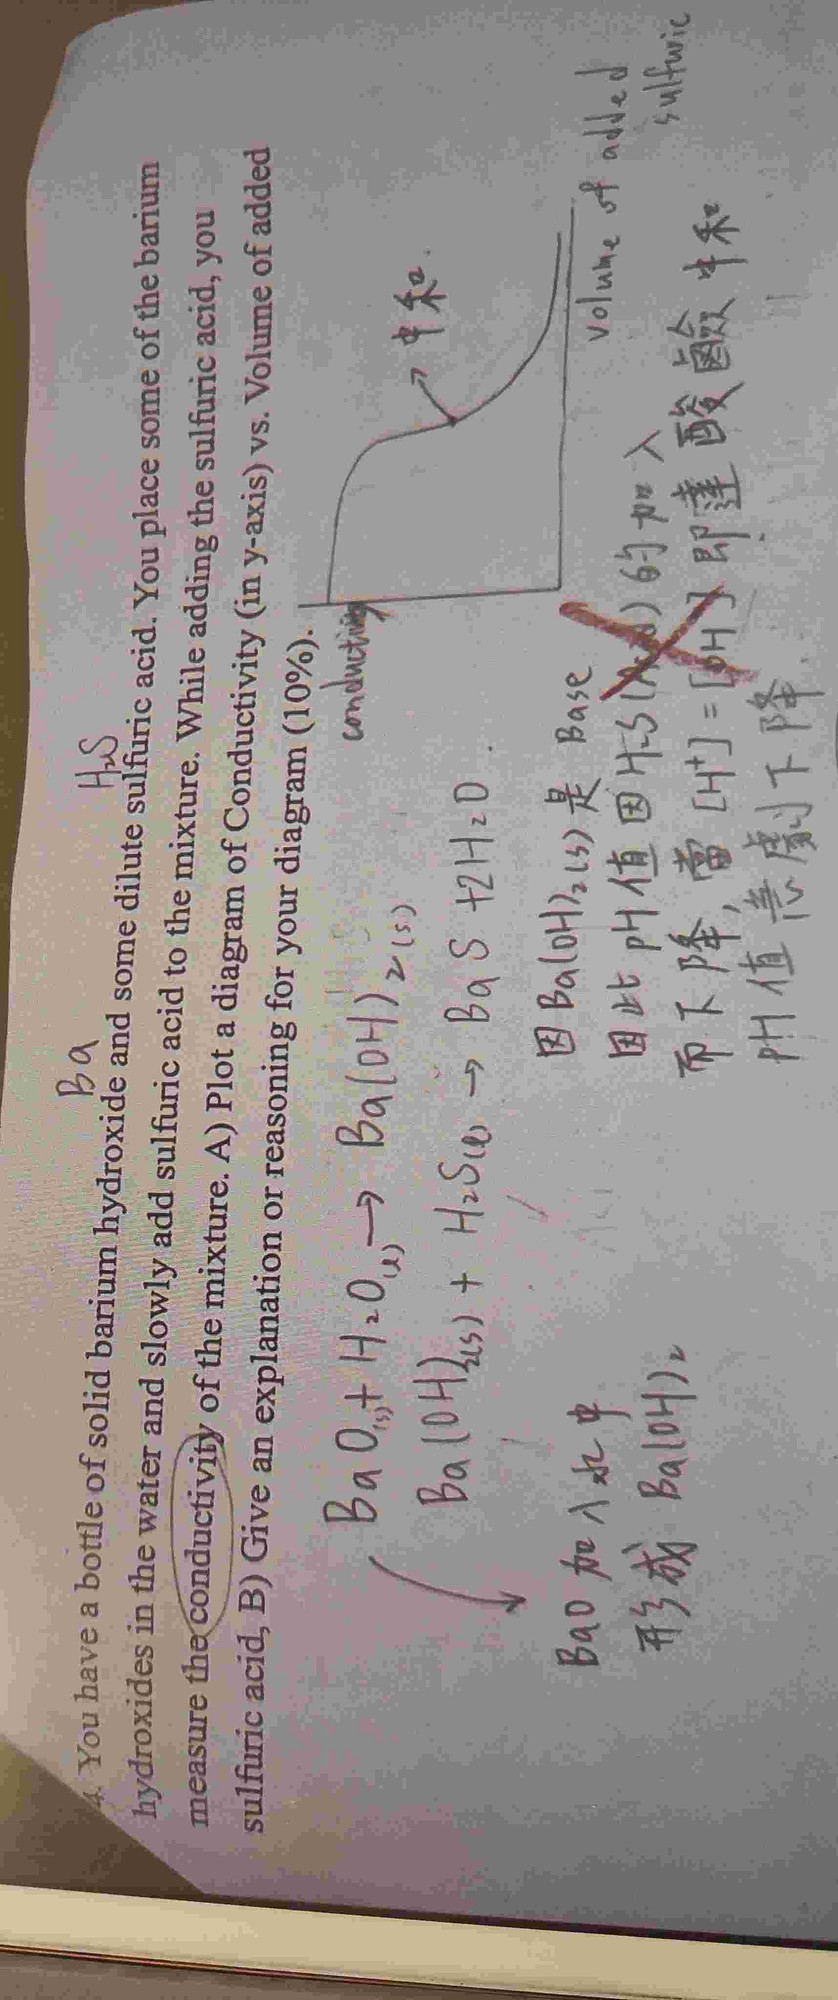 4. You have a bottle of solid barium hydroxide and some dilute sulfuric acid. You place some of the barium
Ba
H₂S
hydroxides in the water and slowly add sulfuric acid to the mixture. While adding the sulfuric acid, you
measure the conductivity of the mixture. A) Plot a diagram of Conductivity (in y-axis) vs. Volume of added
sulfuric acid, B) Give an explanation or reasoning for your diagram (10%).
BaO(s) + H₂O(l) → Ba(OH)₂(s)
Ba(OH)₂(s) + H₂S(l) → BaS + 2H₂O.
BaO 加入水中
形成 Ba(OH)₂
conducting
中和.
volume of added
sulfuric
因 Ba(OH)₂(s) 是 Base
因此 pH 值因 H₂S (Acid) 的加入
而下降, 當 [H⁺] = [OH⁻] 即達酸鹼中和
pH 值急劇下降.